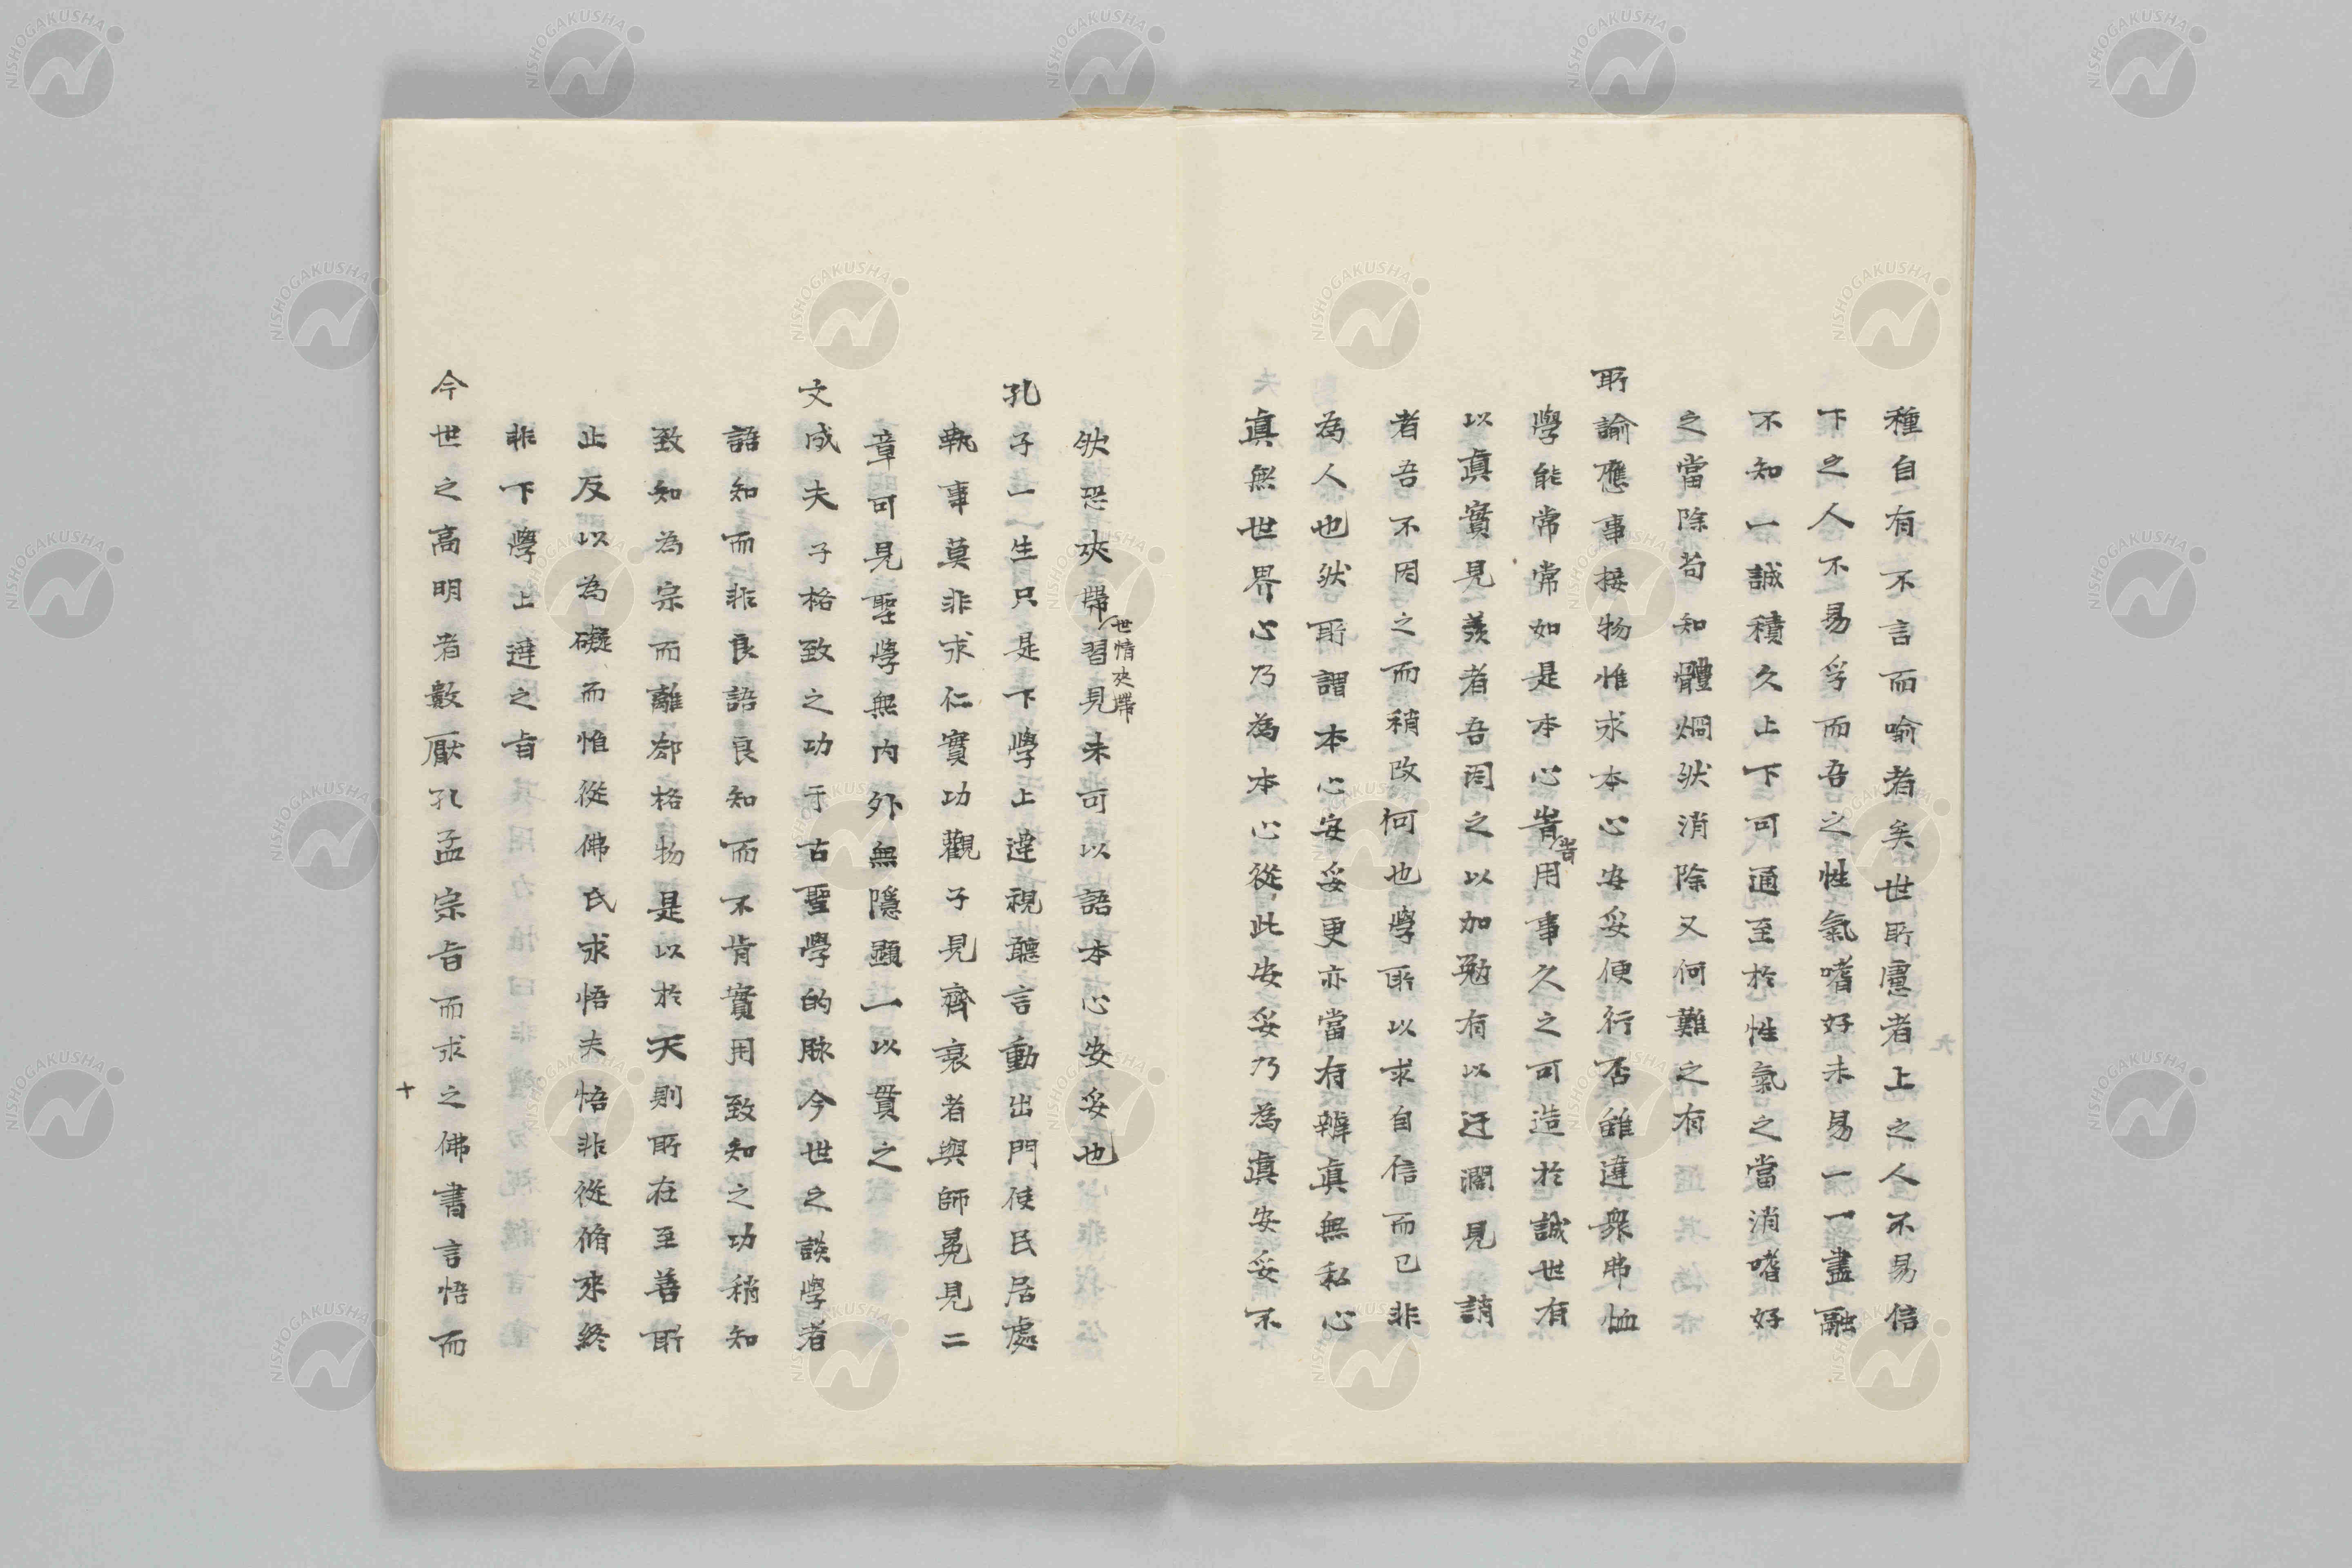 種自有不言而喻者矣世所慮者上之人不易信
下之人不易孚而吾之性氣嗜好未易一一盡融
不知一誠積久上下可通至於性氣之當消嗜好
之當除苟知體烱然消除又何難之有
所諭應事接物惟求本心安妥便行否雖違衆弗恤
學能常常如是本心皆用事久之可造於誠世有
皆
以真實見羨者吾因之以加勉有以迂濶見誚
者吾不因之而稍改何也學所以求自信而已非
為人也然所謂本心安妥更亦當有辨真無私心
真無世界心乃為本心從此安妥乃為真安妥不
然恐夾帶習見未可以語本心安妥也
世情夾帶
孔子一生只是下學上達視聽言動出門使民居處
執事莫非求仁實功觀子見齊衰者與師冕見二
章可見聖學無内外無隱顯一以貫之
文成夫子格致之功于古聖學的脉今世之談學者
語知而非良語良知而不肯實用致知之功稍知
致知為宗而離却格物是以於天則所在至善所
止反以為礙而惟從佛氏求悟夫悟非從脩來終
非下學上達之旨
今世之高明者數厭孔孟宗旨而求之佛書言悟而
十
九
NISHOGAKUSHA